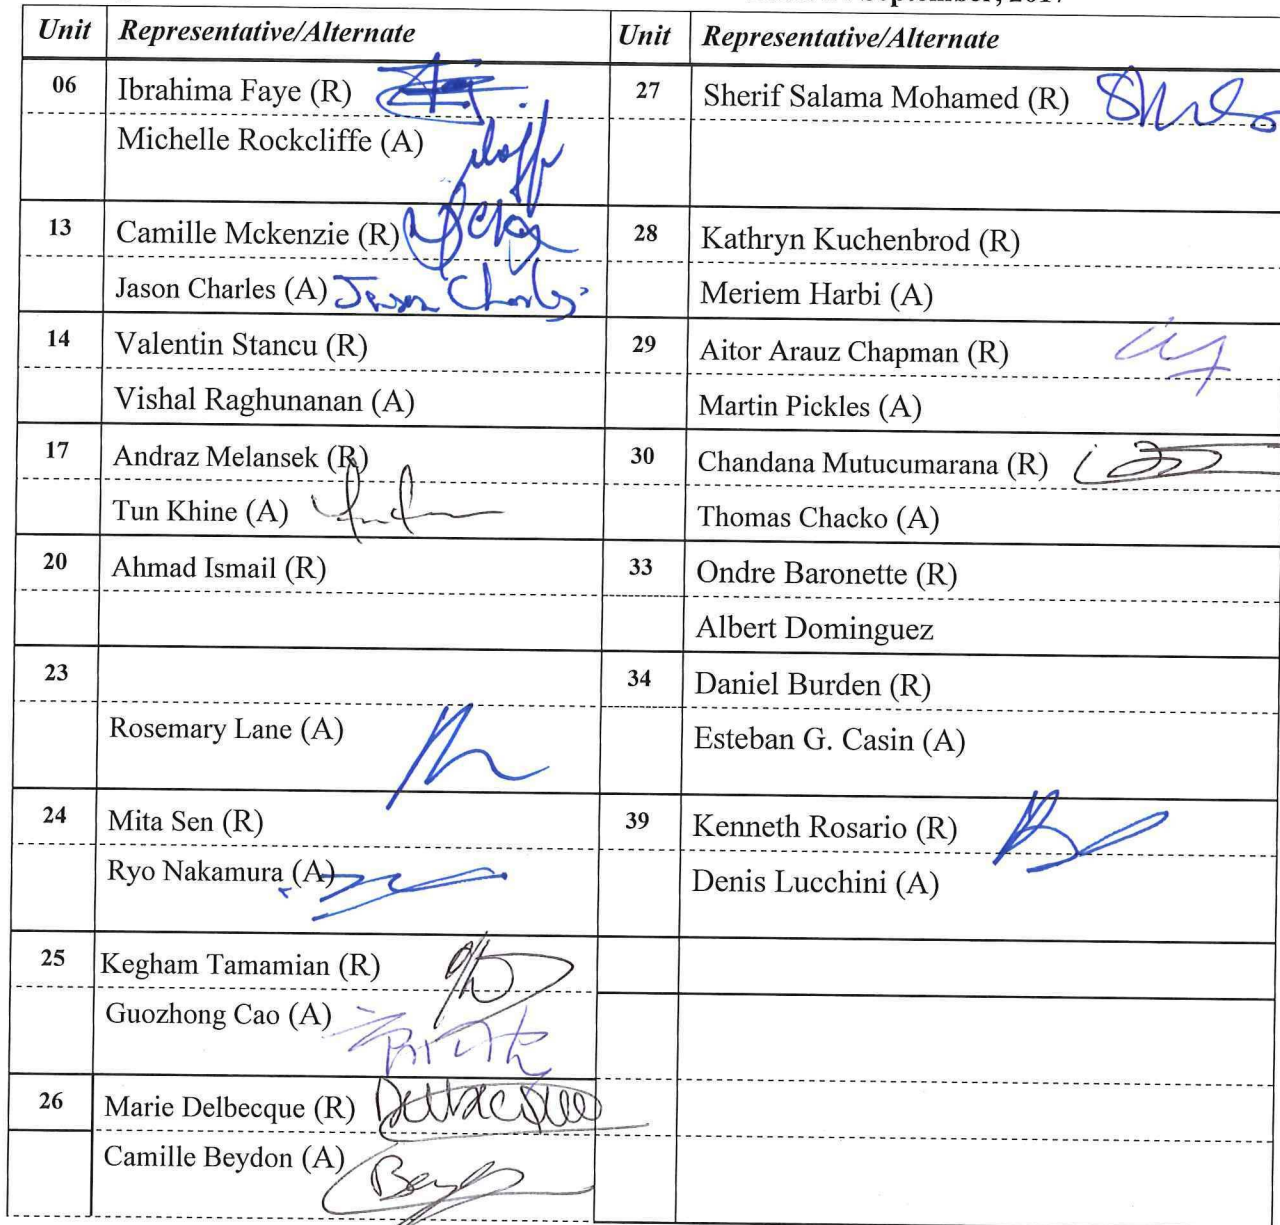 September, 2017
Unit Representative/Alternate Unit Representative/Alternate
06 Ibrahima Faye (R) 27 Sherif Salama Mohamed (R)
Michelle Rockcliffe (A)
13 Camille Mckenzie (R) 28 Kathryn Kuchenbrod (R)
Jason Charles (A) Jason Charles Meriem Harbi (A)
14 Valentin Stancu (R) 29 Aitor Arauz Chapman (R)
Vishal Raghunanan (A) Martin Pickles (A)
17 Andraz Melansek (R) 30 Chandana Mutucumarana (R)
Tun Khine (A) Thomas Chacko (A)
20 Ahmad Ismail (R) 33 Ondre Baronette (R)
Albert Dominguez
23 34 Daniel Burden (R)
Rosemary Lane (A) Esteban G. Casin (A)
24 Mita Sen (R) 39 Kenneth Rosario (R)
Ryo Nakamura (A) Denis Lucchini (A)
25 Kegham Tamamian (R)
Guozhong Cao (A)
26 Marie Delbecque (R) Delbecque
Camille Beydon (A)